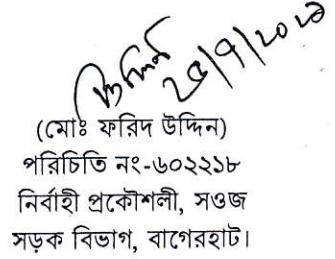 (মোঃ ফরিদ উদ্দিন)
পরিচিতি নং-৬০২২১৮
নির্বাহী প্রকৌশলী, সওজ
সড়ক বিভাগ, বাগেরহাট।